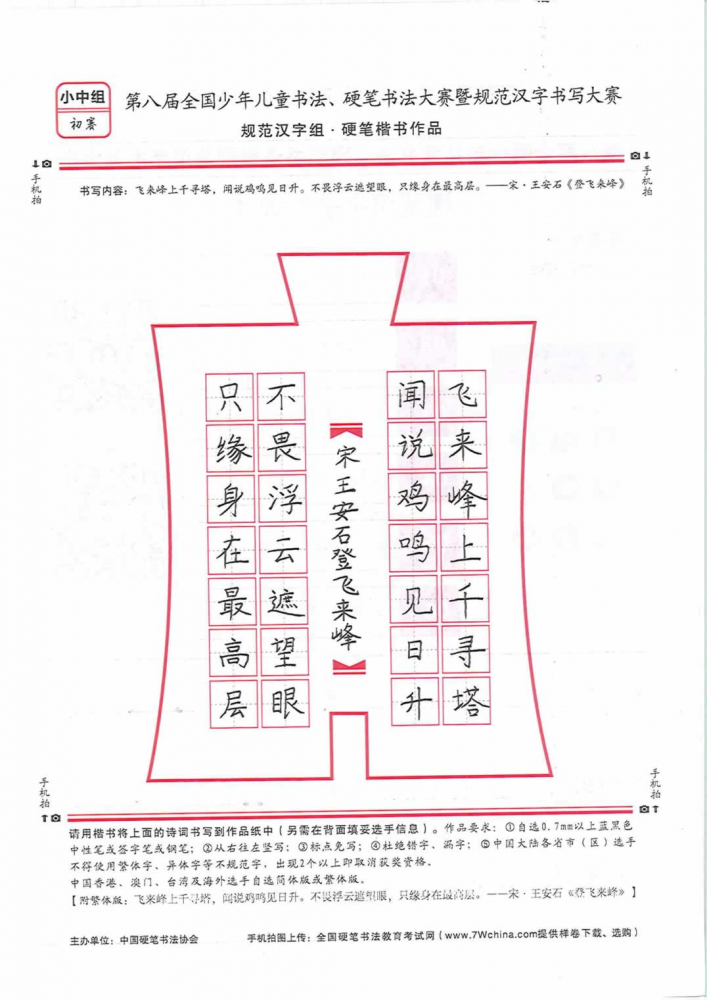 小中组
初赛
第八届全国少年儿童书法、硬笔书法大赛暨规范汉字书写大赛
规范汉字组·硬笔楷书作品
手机拍
手机拍
书写内容：飞来峰上千寻塔，闻说鸡鸣见日升。不畏浮云遮望眼，只缘身在最高层。——宋·王安石《登飞来峰》
飞来峰上千寻塔
闻说鸡鸣见日升
宋王安石登飞来峰
不畏浮云遮望眼
只缘身在最高层
手机拍
手机拍
请用楷书将上面的诗词书写到作品纸中（另需在背面填妥选手信息）。作品要求：①自选0.7mm以上蓝黑色
中性笔或签字笔或钢笔；②从右往左竖写；③标点免写；④杜绝错字、漏字；⑤中国大陆各省市（区）选手
不得使用繁体字、异体字等不规范字，出现2个以上即取消获奖资格。
中国香港、澳门、台湾及海外选手自选简体版或繁体版。
【附繁体版：飞来峰上千寻塔，闻说鸡鸣见日升。不畏浮云遮望眼，只缘身在最高层。——宋·王安石《登飞来峰》】
主办单位：中国硬笔书法协会
手机拍图上传：全国硬笔书法教育考试网（www.7Wchina.com提供样卷下载、选购）